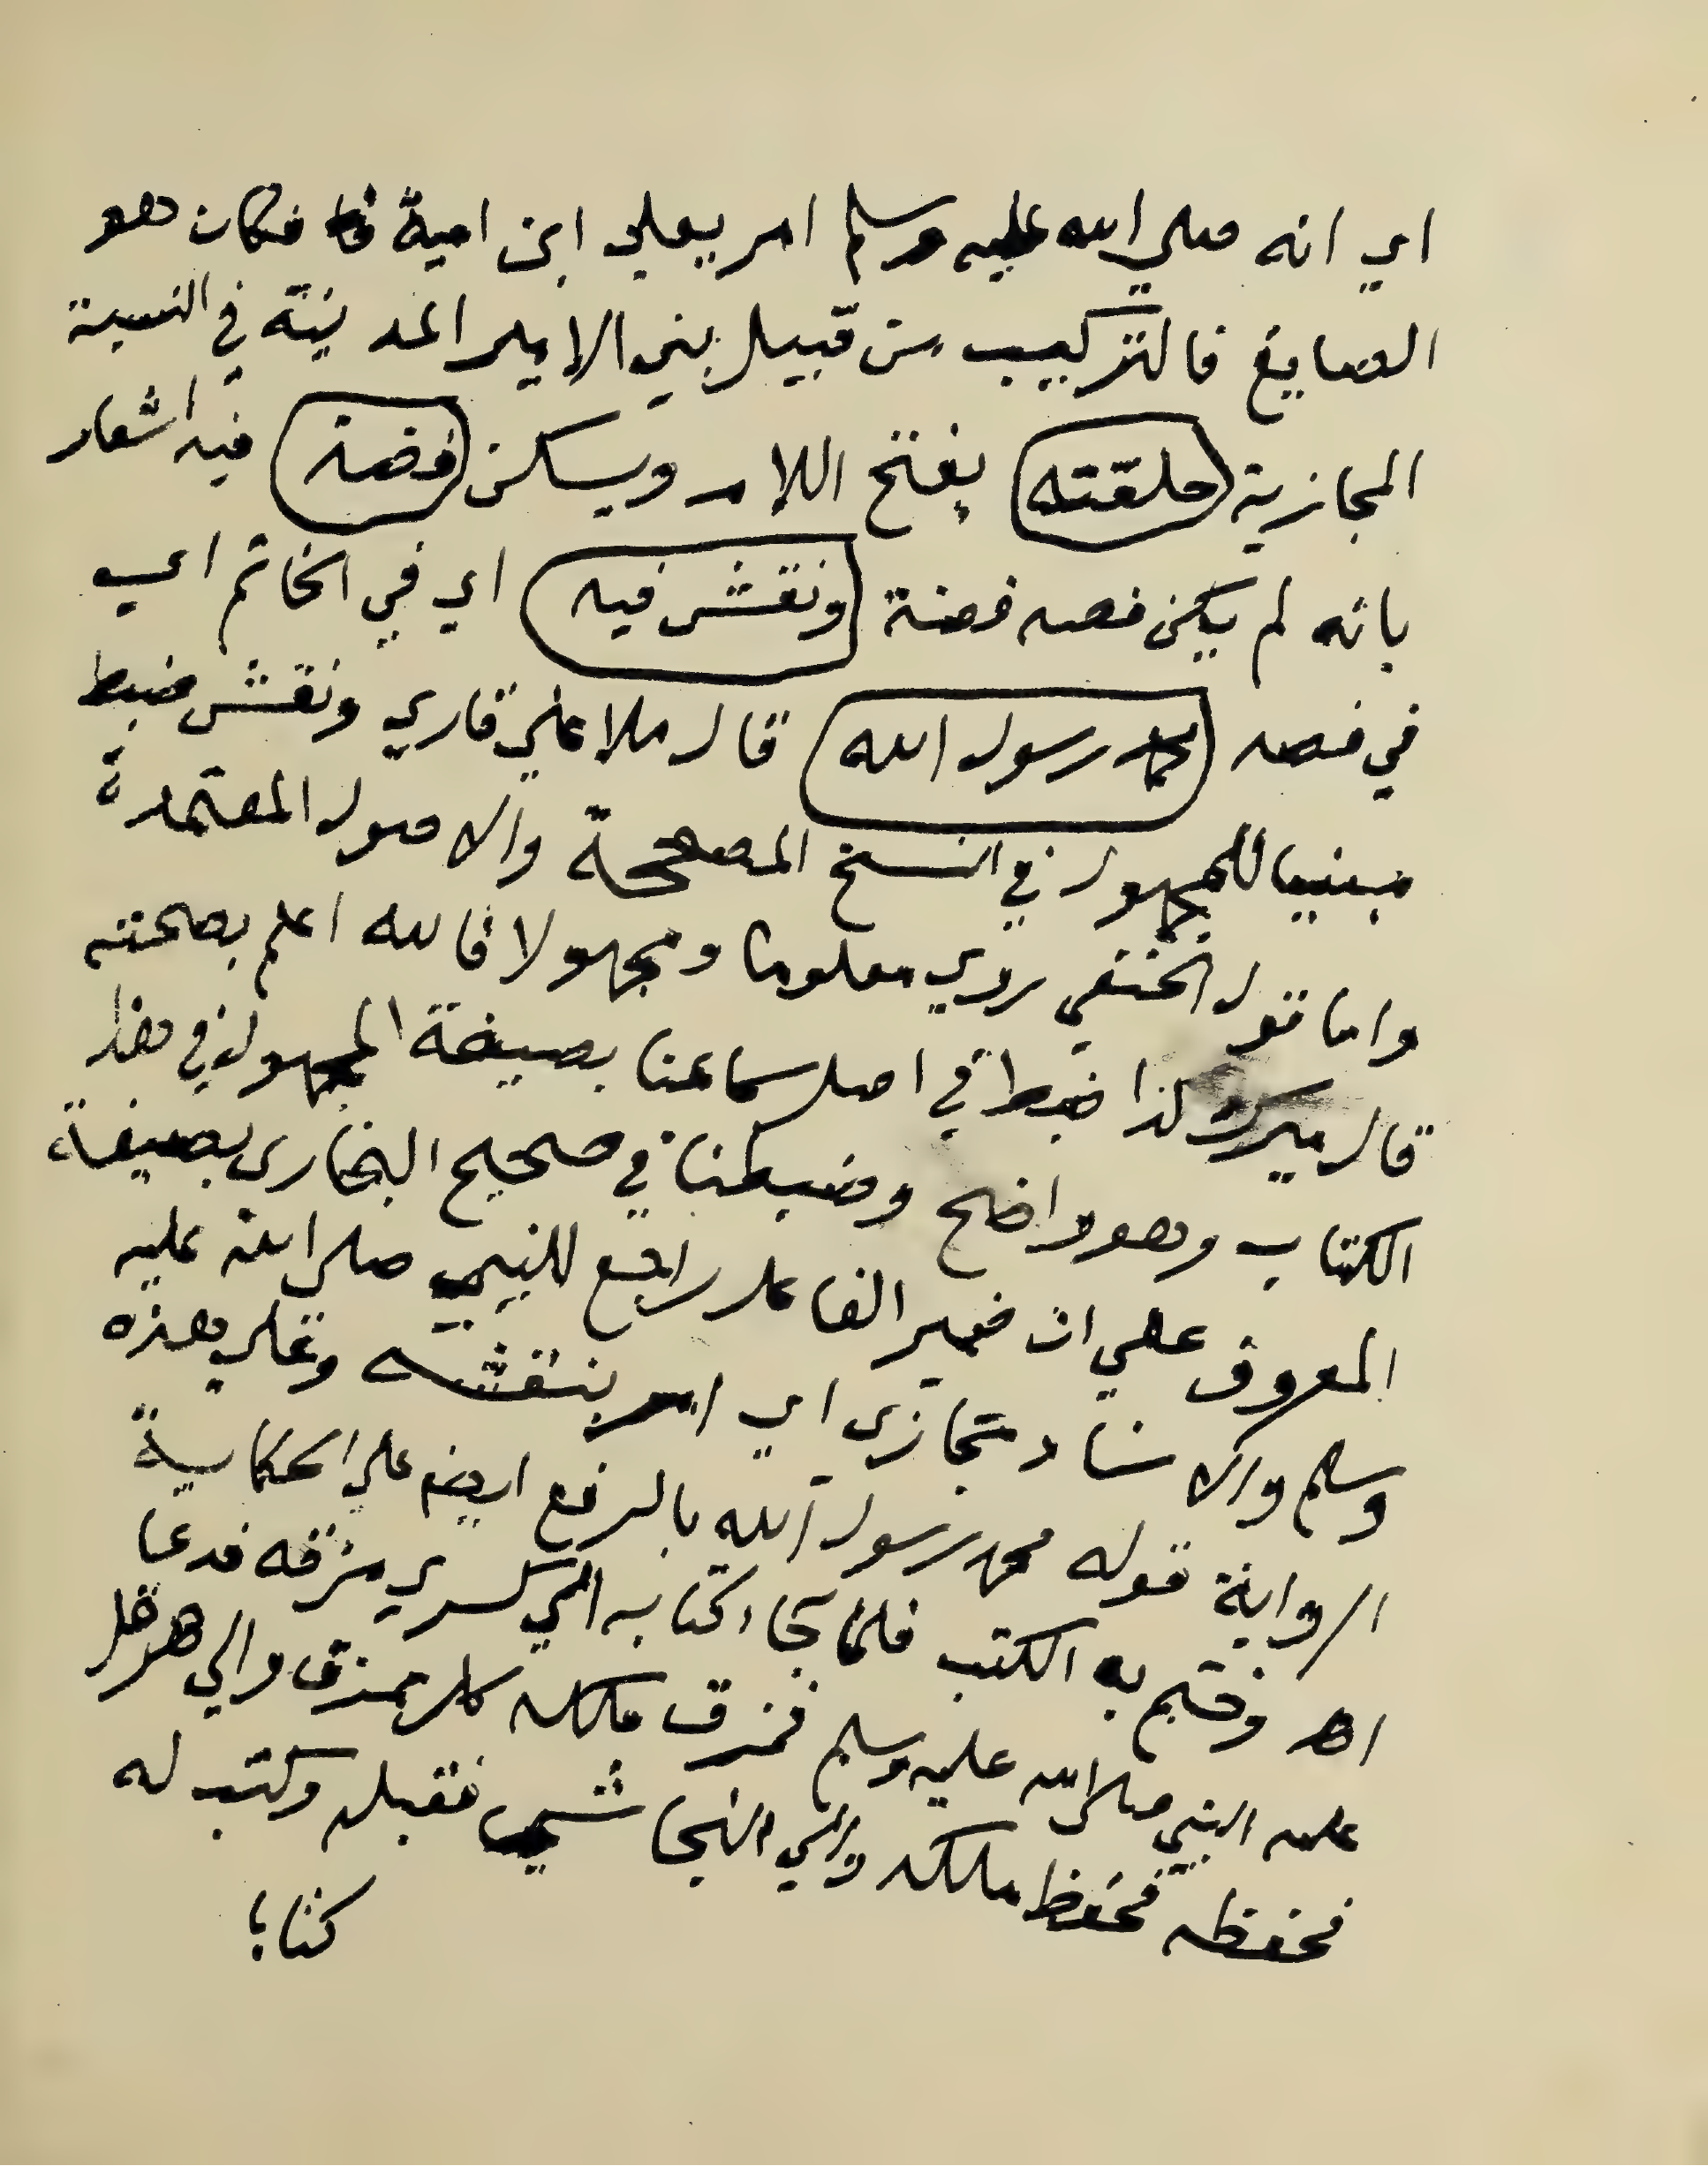 اي انه صلي الله عليه وسلم امر يعلي ابن امية فكان هو
الصايغ فالتركيب من قبيل بني الامير المدينة في النسبة
المجازية حلقته بفتح اللام ويسكن فضة فيه اشعار
بانه لم يكن فصه فضة ونقش فيه اي في الخاتم اي
في فصه محمد رسول الله قال ملا علي قاري ونقش ضبط
مبنيا للمجهول في النسخ المصححة والاصول المعتمدة
واما قول الحنفي روي معلوما ومجهولا فالله اعلم بصحته
قال ميرك كذا ضبط في اصل سماعنا بصيغة المجهول في هذا
الكتاب وهو واضح وضبطنا في صحيح البخاري بصيغة
المعروف علي ان ضمير الفاعل راجع للنبي صلي الله عليه
وسلم والاسناد مجازي اي امر بنقشه وعلي هذه
الرواية قوله محمد رسول الله بالرفع ايضا علي الحكاية
اهـ وختم به الكتب فلما جاء كتابه الي كسري مزقه فدعا
عليه النبي صلي الله عليه وسلم فمزق ملكه كل ممزق والي هرقل
فحفظه فحفظ ملكه والي النجاشي فقبل وكتب له
كتابا